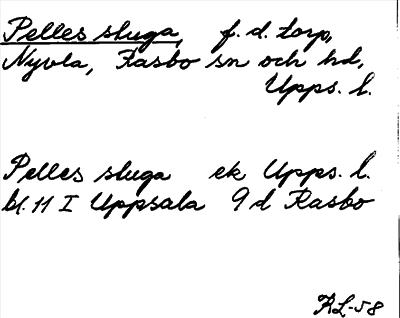 Pelles stuga, f.d. torp,
Nyvla, Rasbo sn och hd,
Upps. l.
Pelles stuga ek Upps. l.
bl. 11 I Uppsala 9d Rasbo
RL-58